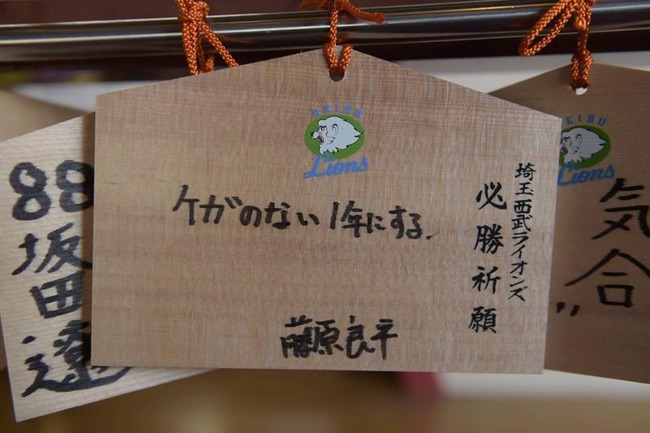 SEIBU
Lions
埼玉西武ライオンズ
必勝祈願
ケガのない1年にする.
藤原良平
88
坂田遼
SEIBU
Lions
気合"